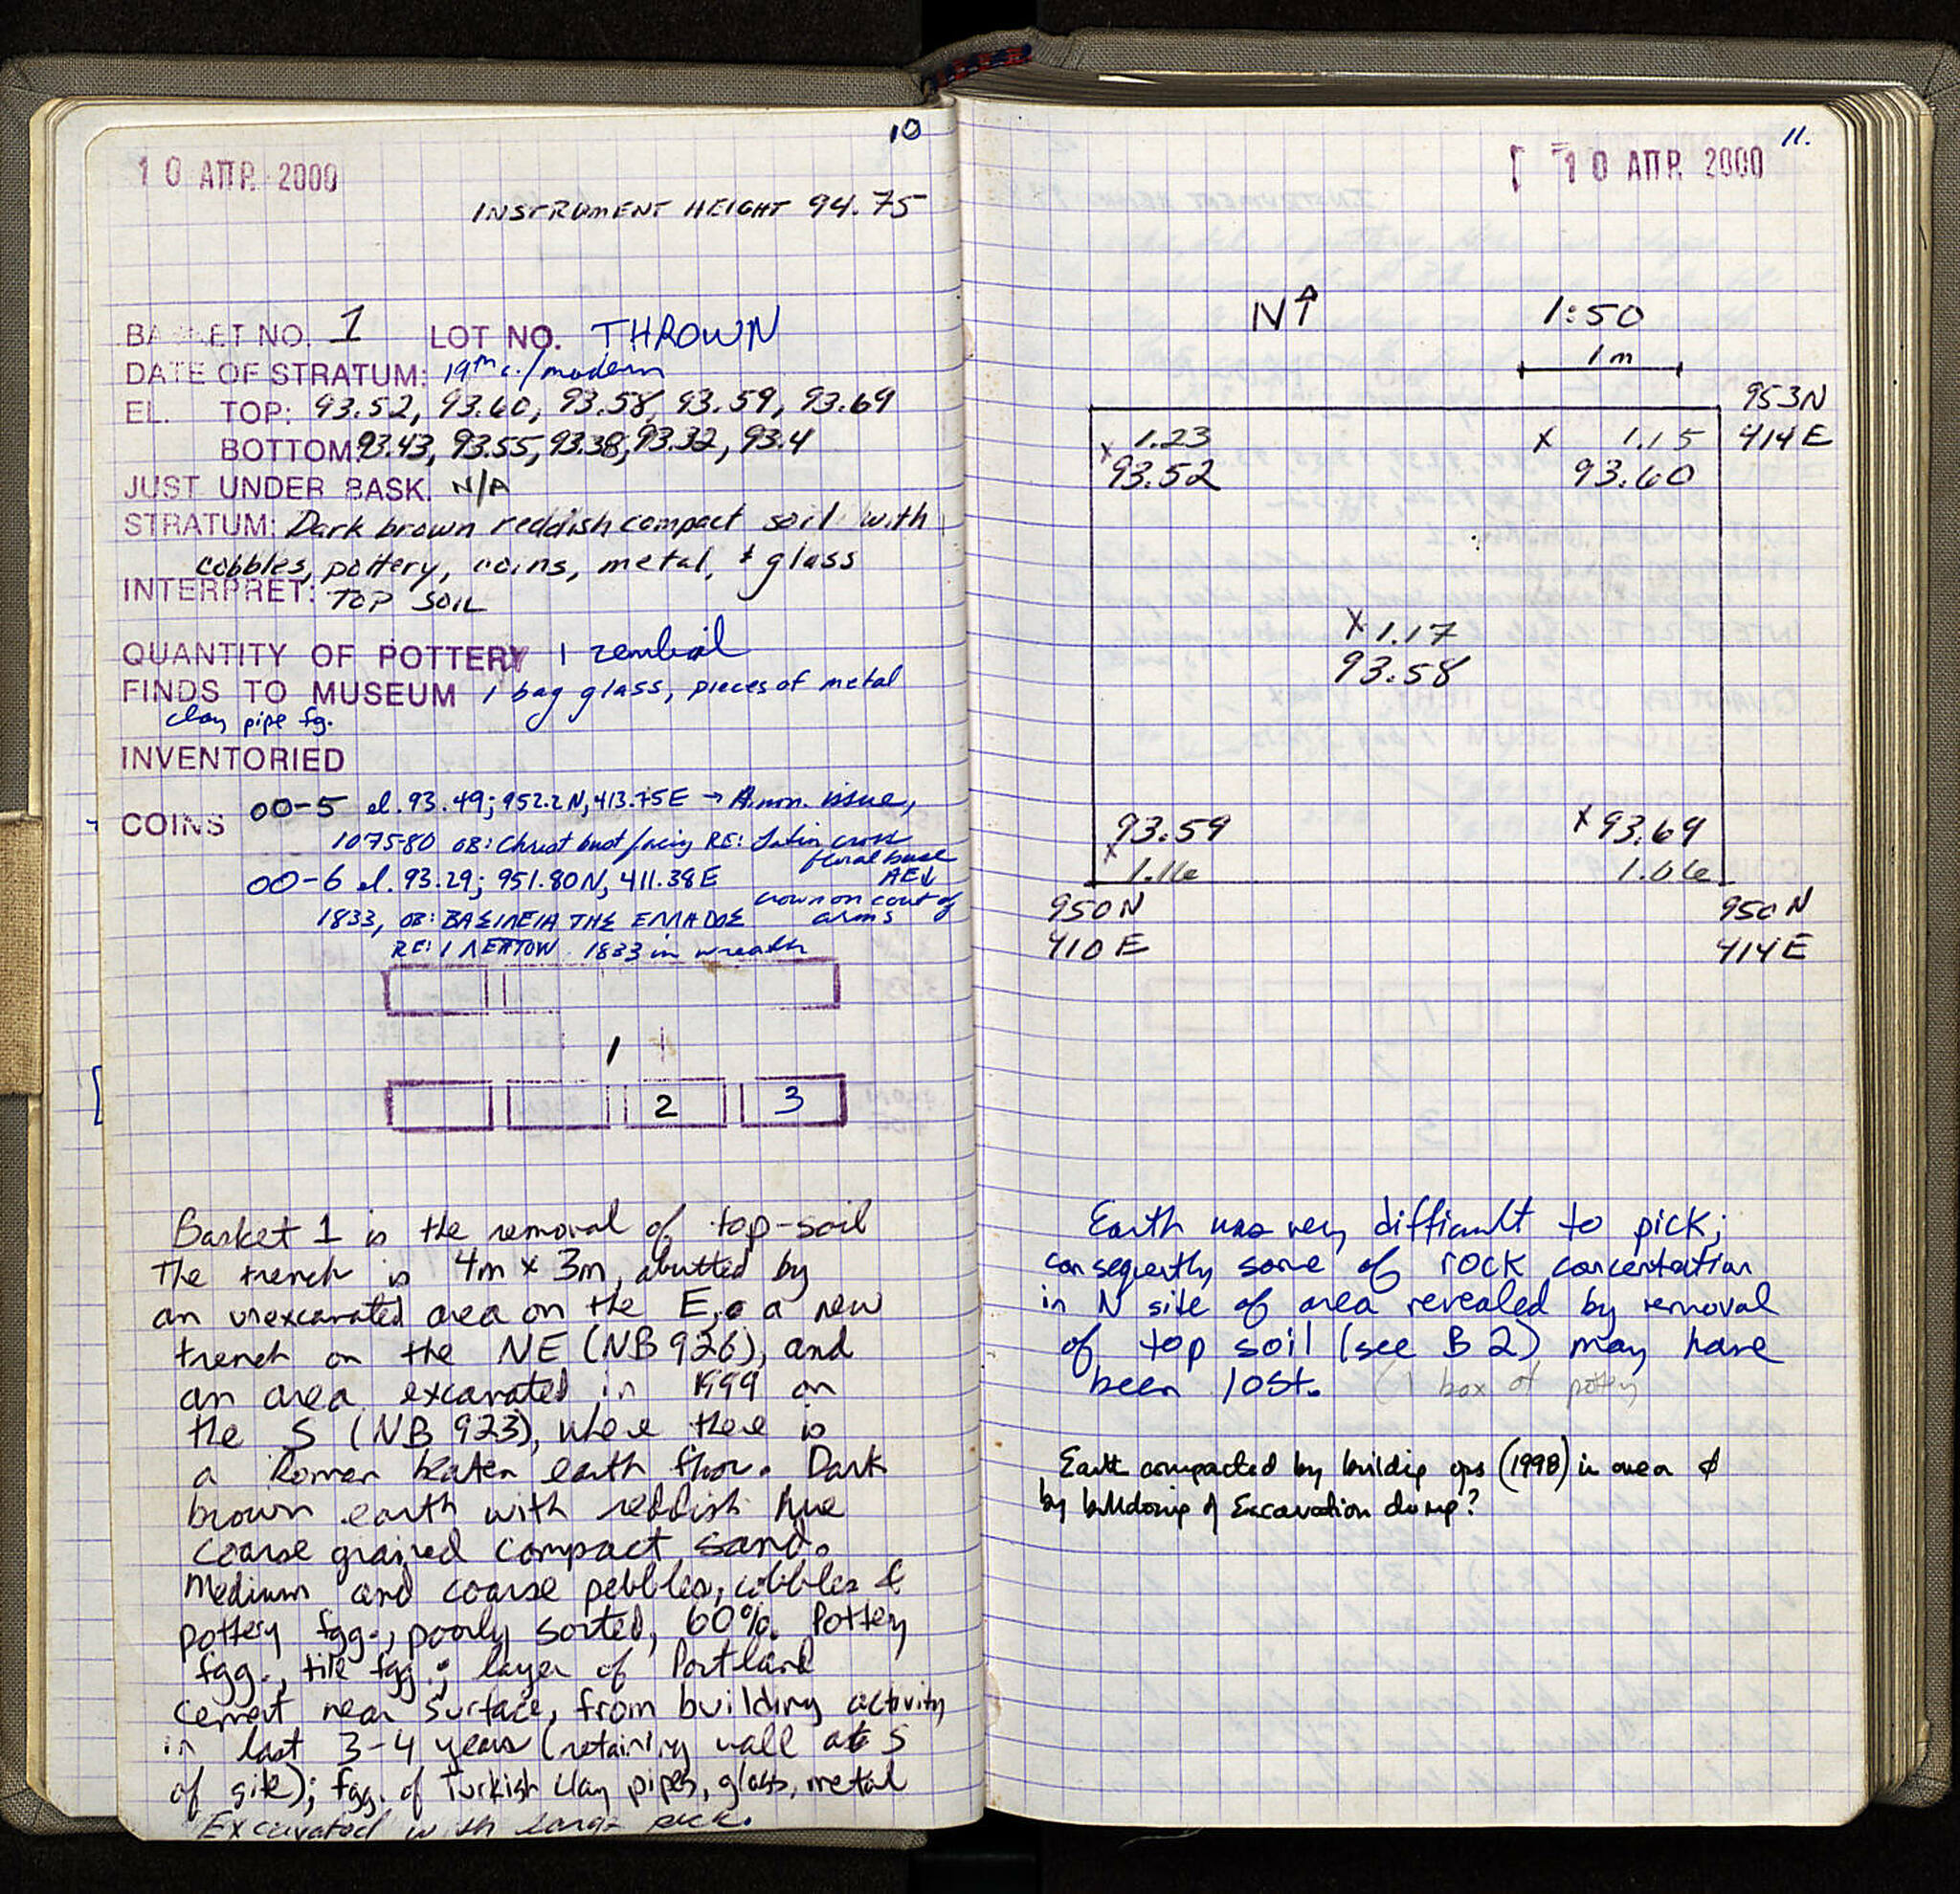 10
10 ΑΠΡ. 2000
INSTRUMENT HEIGHT 94.75
BASKET NO. 1 LOT NO. THROWN
DATE OF STRATUM: 19th c./modern
EL. TOP: 93.52, 93.60, 93.58, 93.59, 93.69
BOTTOM: 93.43, 93.55, 93.38, 93.32, 93.4
JUST UNDER BASK. N/A
STRATUM: Dark brown reddish compact soil with
cobbles, pottery, coins, metal, & glass
INTERPRET: TOP SOIL
QUANTITY OF POTTERY 1 zembil
FINDS TO MUSEUM 1 bag glass, pieces of metal
clay pipe fg.
INVENTORIED
COINS 00-5 el. 93.49; 952.2 N, 413.75 E → Anon. issue,
1075-80 OB: Christ bust facing RE: Latin cross
floral base
AE↓
00-6 el. 93.29; 951.80 N, 411.38 E
crown on coat of
arms
1833, OB: ΒΑΣΙΛΕΙΑ ΤΗΣ ΕΛΛΑΔΟΣ
RE: 1 ΛΕΠΤΟΝ 1833 in wreath
1
2 3
Basket 1 is the removal of top-soil
The trench is 4m x 3m, abutted by
an unexcavated area on the E, a new
trench on the NE (NB 926), and
an area excavated in 1999 on
the S (NB 923), where there is
a Roman beaten earth floor. Dark
brown earth with reddish hue
coarse grained compact sand.
Medium and coarse pebbles, cobbles &
pottery fgg., poorly sorted, 60%. Pottery
fgg., tile fgg.; layer of Portland
cement near surface, from building activity
in last 3-4 years (retaining wall at S
of site); fgg. of Turkish clay pipes, glass, metal
Excavated with large pick.
11.
10 ΑΠΡ. 2000
N↑ 1:50
1 m
953 N
414 E
x 1.23
93.52
x 1.15
93.60
x 1.17
93.58
93.59
x 1.16
x 93.69
1.06
950 N
410 E
950 N
414 E
Earth was very difficult to pick;
consequently some of rock concentration
in N site of area revealed by removal
of top soil (see B 2) may have
been lost. (1 box of pottery
Earth compacted by buildig ops (1998) in area &
by bulldozing of Excavation dump?